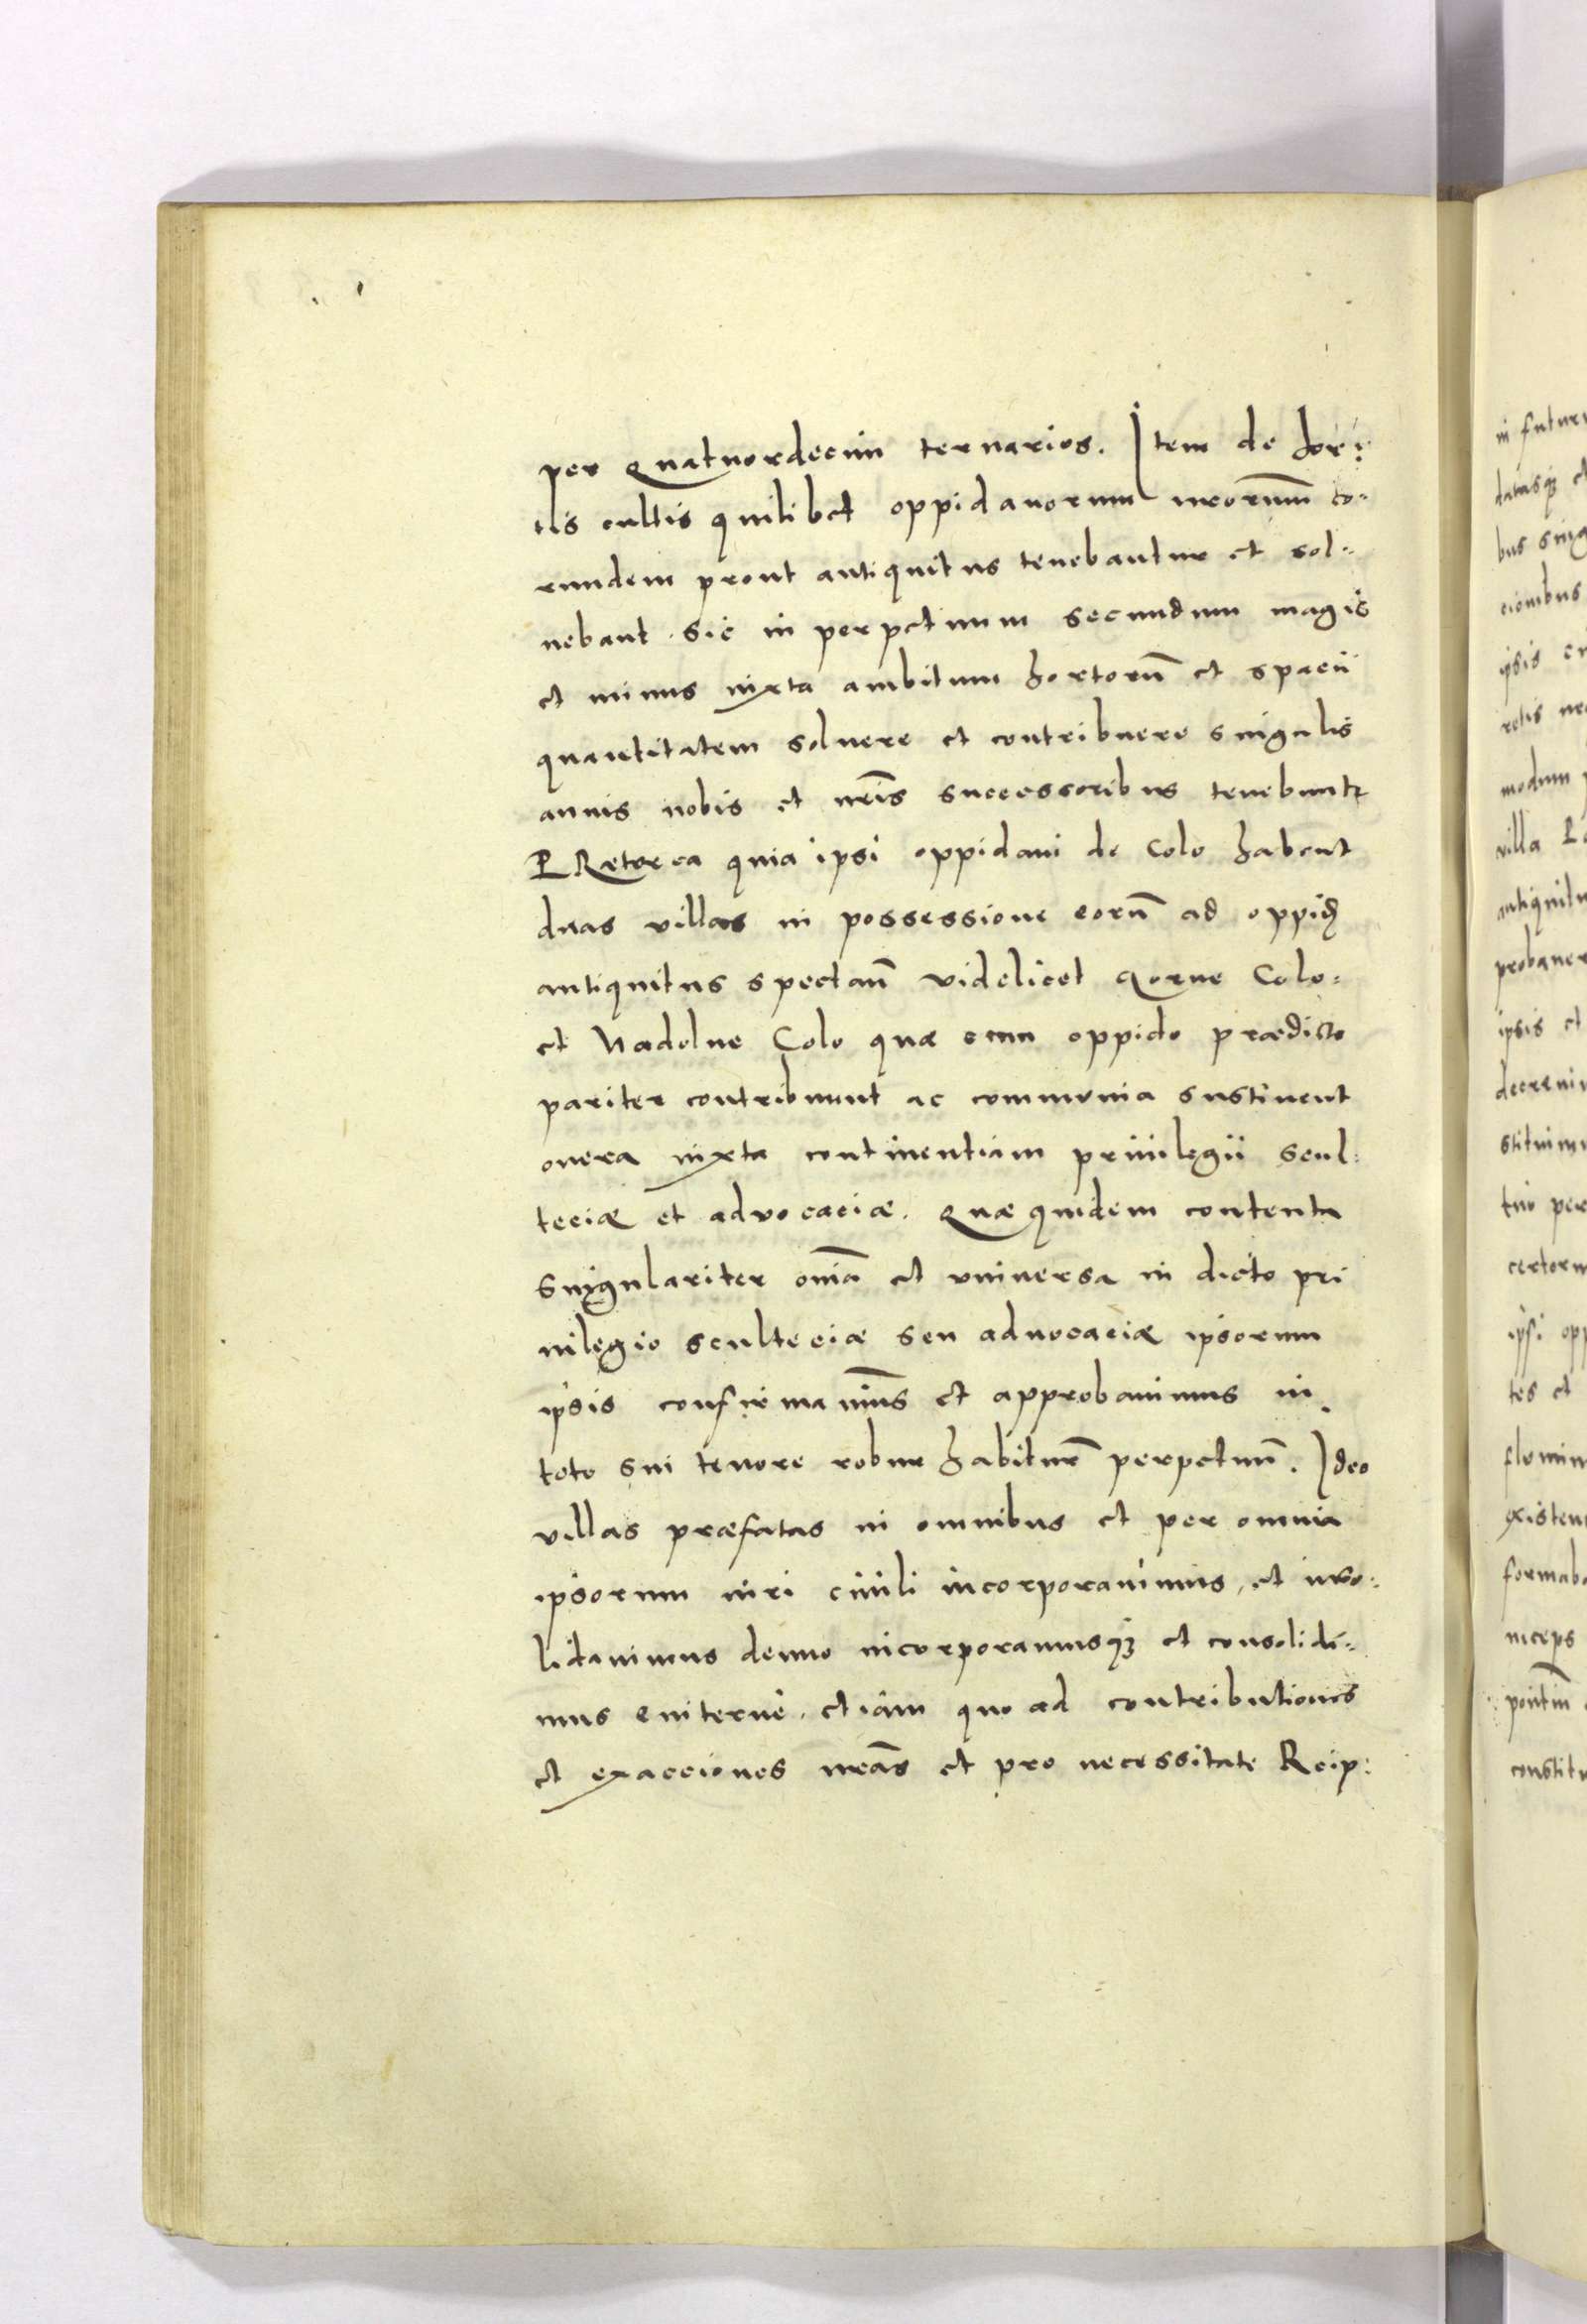 per quatuordecim ternarios. Item de hor:
tis cultis quilibet oppidanorum nrorum̄ eo-
rundem prout antiquitus tenebantur et sol-
uebant. Sic in perpetuum secundum magis
et minus iuxta ambitum hortorū et spacii
quantitatem soluere et contribuere singulis
annis nobis et nr̄is successoribus tenebuntr
PRætorea quia ipsi oppidani de Colo habent
duas villas in possessione eorū ad oppid
antiquitus spectan̄ videlicet Gorne Colo-
et Nadolne Colo quæ cum oppido prædicto
pariter contribuunt ac communia sustinent
onera iuxta continentiam priuilegii scul:
teciæ et advocaciæ. Quæ quidem contenta
singulariter om̄ia et vniuersa in dicto pri
uilegio sculteciæ seu aduocaciæ ipsorum
ipsis confirmauim̄s et approbauimus in
toto sui tenore robur habitur̄ perpetuū. Ideo
villas præfatas in omnibus et per omnia
ipsorum iuri ciuili incorporauimus, et inuo:
lidauimus denuo incorporamusq3 et consolida-
mus euiterne. etiam quo ad contributiones
et exacciones nr̄as et pro necessitate Reip:
in futur
datasq3 et
bus sing
cionibus
ipsis
modum
villa
antiquitu
probauer
ipsis et
decreui
stituimu
tuo per
certorum
ipsi opp
tes et
flumin
existen
formab
niceps
constitu